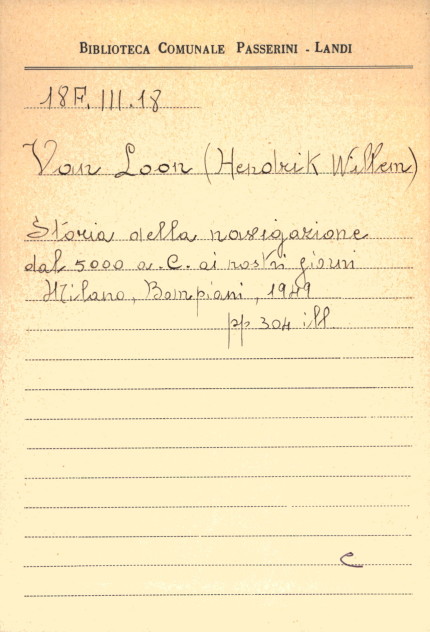 BIBLIOTECA COMUNALE PASSERINI - LANDI
18F.III.18
Van Loon (Hendrik Willem)
Storia della navigazione
dal 5000 a.C. ai nostri giorni
Milano, Bompiani, 1949
pp 304 ill.
C